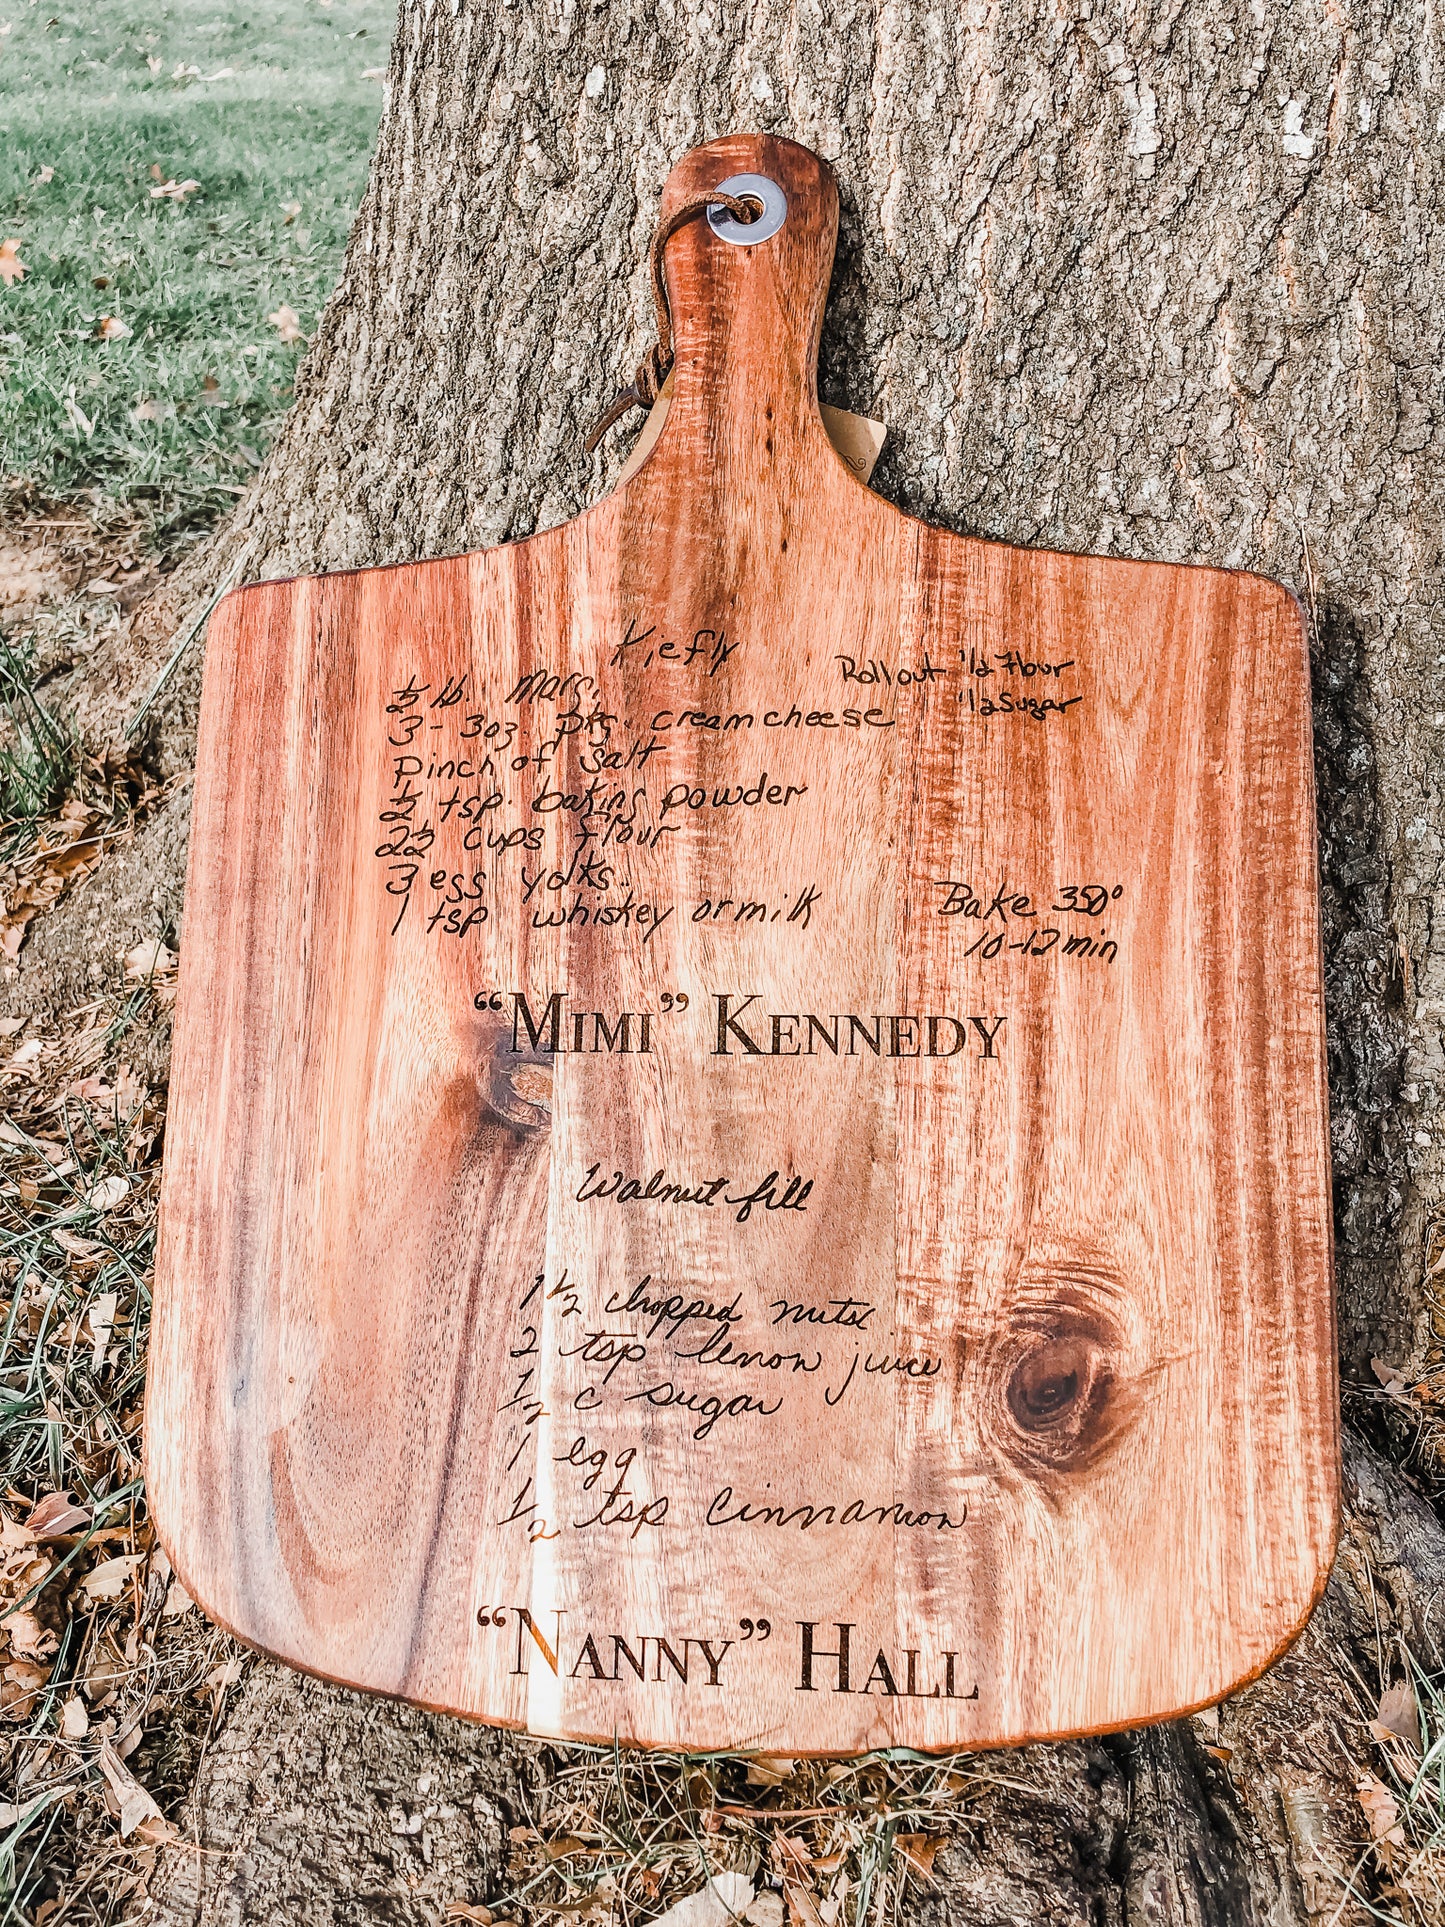 Kiefly
½ lb. Marg.
Rollout ½ Flour
½ Sugar
3 - 3oz. pkg. cream cheese
pinch of salt
½ tsp. baking powder
2½ cups flour
3 egg yolks.
1 tsp whiskey or milk
Bake 350°
10-12 min
“MIMI” KENNEDY
Walnut fill
1 ½ chopped nuts
2 tsp lemon juice
½ c sugar
1 egg
½ tsp cinnamon
“NANNY” HALL